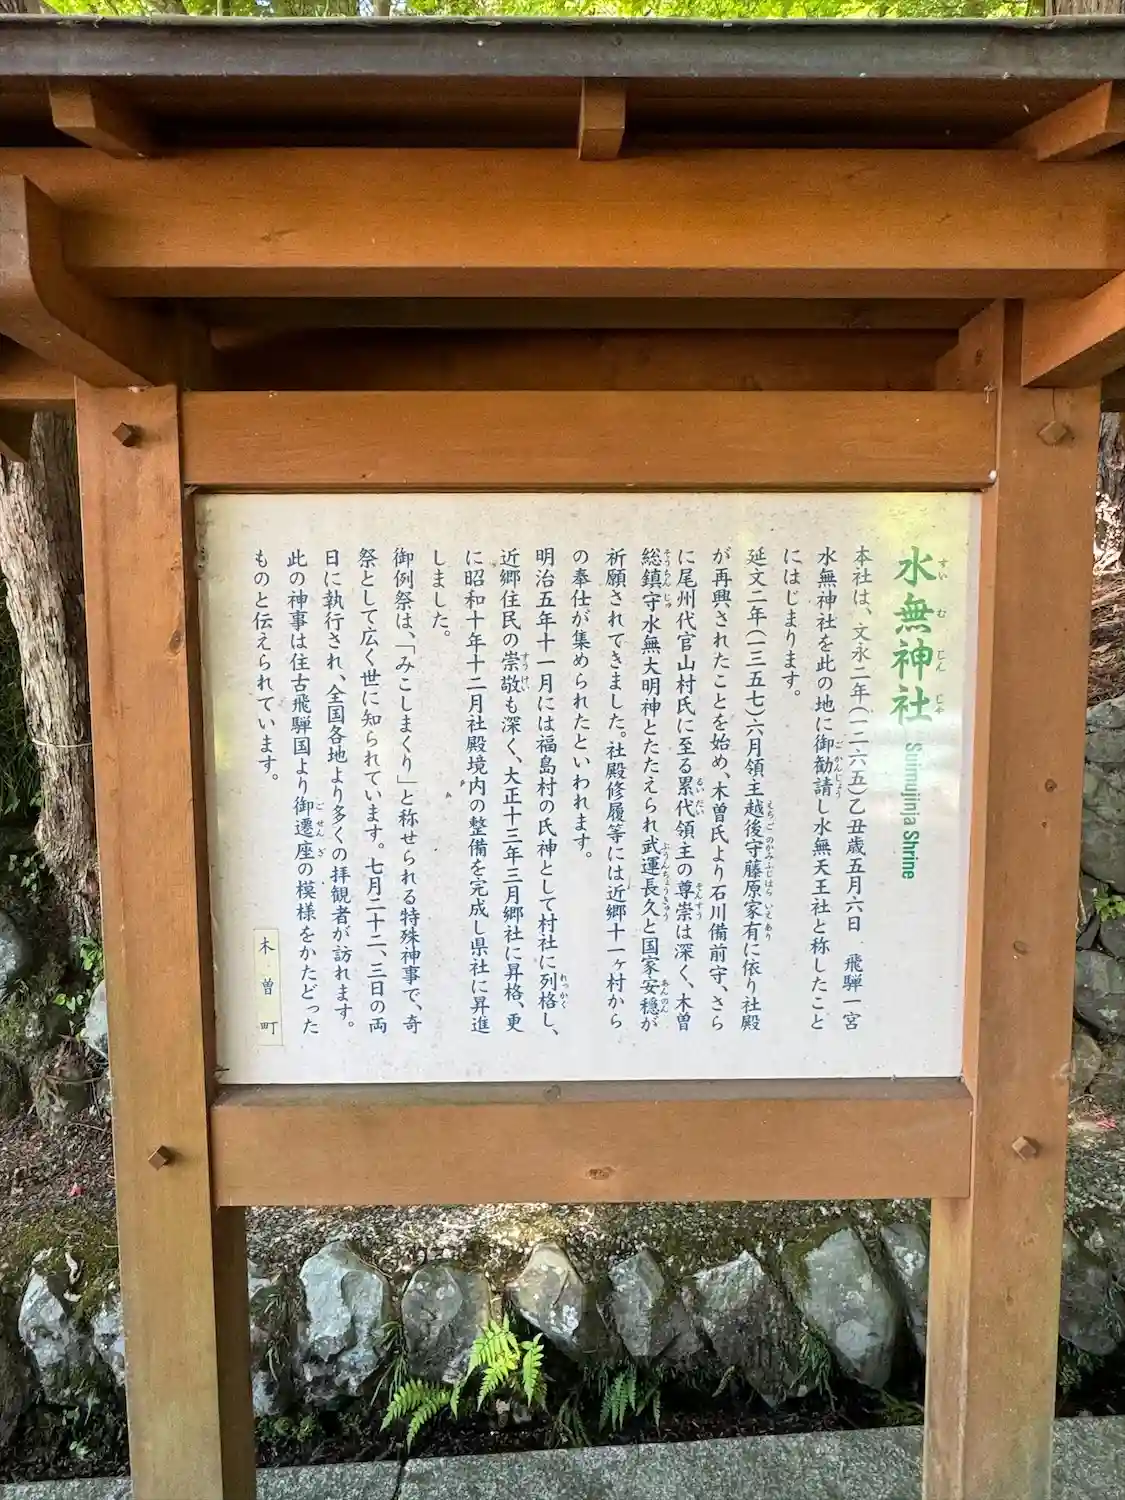 水無神社 Suimujinja Shrine
すい む じん じゃ
本社は、文永二年(一二六五)乙丑歳五月六日 飛騨一宮
水無神社を此の地に御勧請し水無天王社と称したこと
ごかんじょう
にはじまります。
延文二年(一三五七)六月領主越後守藤原家有に依り社殿
えちごのかみふじはらいえあり
が再興されたことを始め、木曽氏より石川備前守、さら
に尾州代官山村氏に至る累代領主の尊崇は深く、木曽
るいだい そんすう
総鎮守水無大明神とたたえられ武運長久と国家安穏が
そうちんじゅ ぶうんちょうきゅう あんのん
祈願されてきました。社殿修履等には近郷十一ヶ村から
の奉仕が集められたといわれます。
明治五年十一月には福島村の氏神として村社に列格し、
れっかく
近郷住民の崇敬も深く、大正十三年三月郷社に昇格、更
すうけい
に昭和十年十二月社殿境内の整備を完成し県社に昇進
しました。
御例祭は、「みこしまくり」と称せられる特殊神事で、奇
祭として広く世に知られています。七月二十二、三日の両
日に執行され、全国各地より多くの拝観者が訪れます。
此の神事は住古飛騨国より御遷座の模様をかたどった
ごせんざ
ものと伝えられています。
木曽町